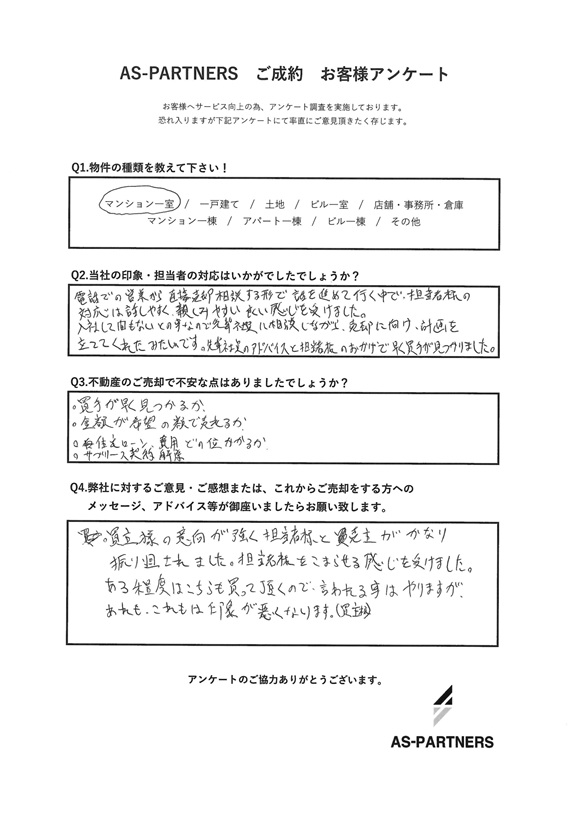 AS-PARTNERS ご成約 お客様アンケート
お客様へサービス向上の為、アンケート調査を実施しております。
恐れ入りますが下記アンケートにて率直にご意見頂きたく存じます。
Q1.物件の種類を教えて下さい！
マンション一室 / 一戸建て / 土地 / ビル一室 / 店舗・事務所・倉庫
マンション一棟 / アパート一棟 / ビル一棟 / その他
Q2.当社の印象・担当者の対応はいかがでしたでしょうか？
電話での営業から直接売却相談する形で話を進めて行く中で、担当者様の
対応は話しやすく、親しみやすい良い感じを受けました。
入社して間もないとの事なので先輩社員に相談しながら、売却に向け、計画を
立ててくれたみたいです。先輩社員のアドバイスと担当者のおかげで早く買手が見つかりました。
Q3.不動産のご売却で不安な点はありましたでしょうか？
○買手が早く見つかるか、
○金額が希望の額で売れるか、
○住宅ローン、費用どの位かかるか、
○サブリース契約解除
Q4.弊社に対するご意見・ご感想または、これからご売却をする方への
メッセージ、アドバイス等が御座いましたらお願い致します。
買主様の意向が強く担当者様と売主がかなり
振り回されました。担当者様をこまらせる感じを受けました。
ある程度はこちらも買って頂くので、言われる事はやりますが、
あれも、これもは印象が悪くなります。(買主様)
アンケートのご協力ありがとうございます。
AS-PARTNERS